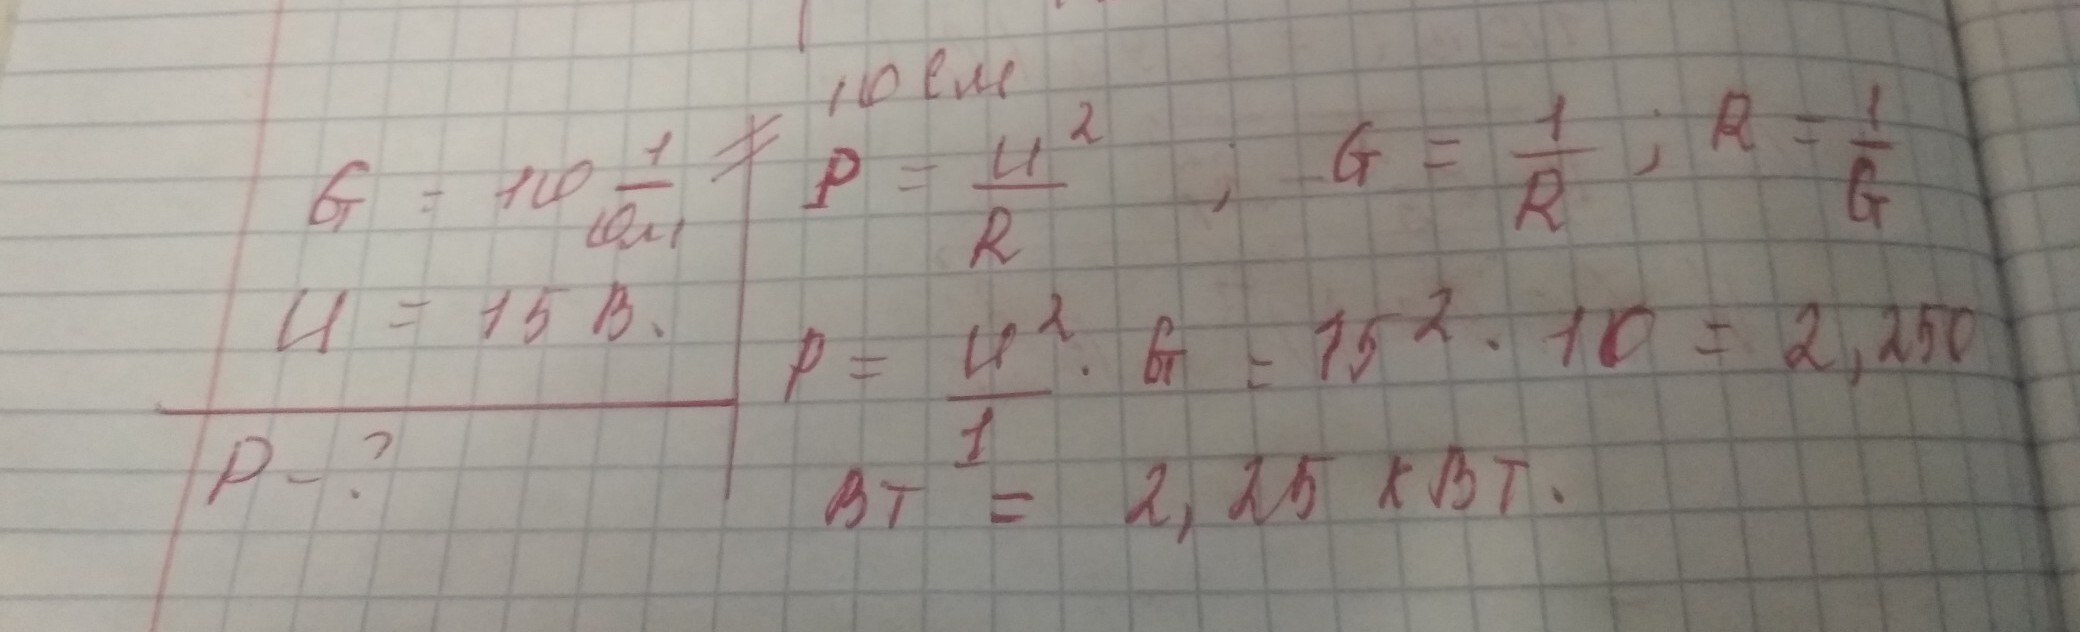 G = 10 1/Ом = 10 См
U = 15 В.
P - ?
P = U²/R ; G = 1/R ; R = 1/G
P = U²/1 · G = 15² · 10 = 2,250
Вт = 2,25 кВт.